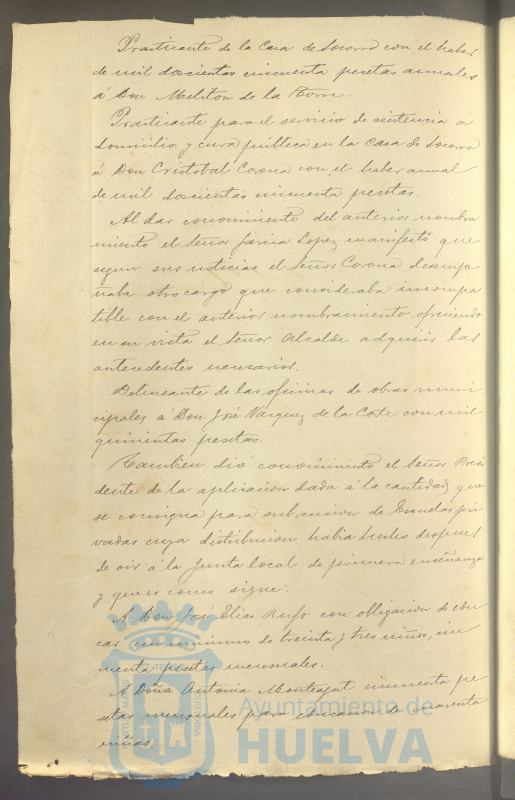 Practicante de la Casa de Socorro con el haber
de mil doscientas cincuenta pesetas anuales
á Don Meliton de la Torre.
Practicante para el servicio de asistencia a
domicilio y cura pública en la Casa de Socorro
á Don Cristobal Corona con el haber anual
de mil doscientas cincuenta pesetas.
Al dar conocimiento del anterior nombra
miento el señor Garcia Lopez manifestó que
segun sus noticias el señor Corona desempe
ñaba otro cargo que consideraba incompa
tible con el anterior nombramiento, ofreciendo
en su vista el señor Alcalde adquirir los
antecedentes necesarios.
Delineante de las oficinas de obras muni
cipales á Don José Vazquez de la Corte con mil
quinientas pesetas.
Tambien dió conocimiento el señor Presi
dente de la aplicacion dada á la cantidad que
se consigna para subvencion de Escuelas pri
vadas cuya distribucion habia hecho despues
de oir á la Junta local de primera enseñanza
y que es como sigue:
A Don José Elias Rufo con obligacion de edu
car un minimo de treinta y tres niños, cin
cuenta pesetas mensuales.
A Doña Antonia cincuenta pe
setas mensuales para educacion de cuarenta
niñas.
Ayuntamiento de
HUELVA